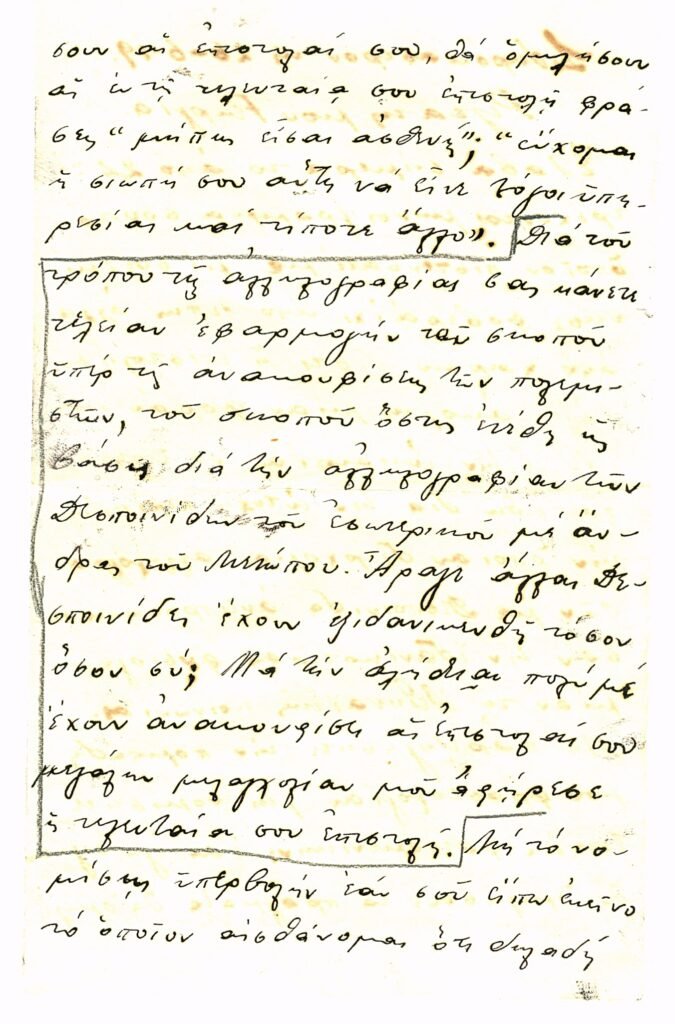 σουν αἱ ἐπιστολαί σου, θά ὁμιλήσουν
αἱ ἐν τῇ τελευταίᾳ σου ἐπιστολῇ φρά-
σεις "μήπως εἶσαι ἀσθενής"; "εὔχομαι
ἡ σιωπή σου αὕτη νά εἶνε λόγοι ὑπη-
ρεσίας καί τίποτε ἄλλο". Διά τοῦ
τρόπου τῆς ἀλληλογραφίας σας κάνετε
τελείαν ἐφαρμογήν τοῦ σκοποῦ
ὑπέρ τῆς ἀνακουφίσεως τῶν πολεμι-
στῶν, τοῦ σκοποῦ ὅστις ἐτέθη ὡς
βάσις διά τήν ἀλληλογραφίαν τῶν
Δεσποινίδων τοῦ ἐσωτερικοῦ μέ ἄν-
δρας τοῦ Μετώπου. Ἆραγε ἄλλαι Δε-
σποινίδες ἔχουν ἐξιδανικευθῆ τόσον
ὅσον σύ; Μά τήν ἀλήθειαν πολύ μέ
ἔχουν ἀνακουφίσει αἱ ἐπιστολαί σου
μεγάλην μελαγχολίαν μοῦ ἀφῄρεσε
ἡ τελευταία σου ἐπιστολή. Μή τό νο-
μίσῃς ὑπερβολήν ἐάν σοῦ εἴπω ἐκεῖνο
τό ὁποῖον αἰσθάνομαι ὅτι δηλαδή